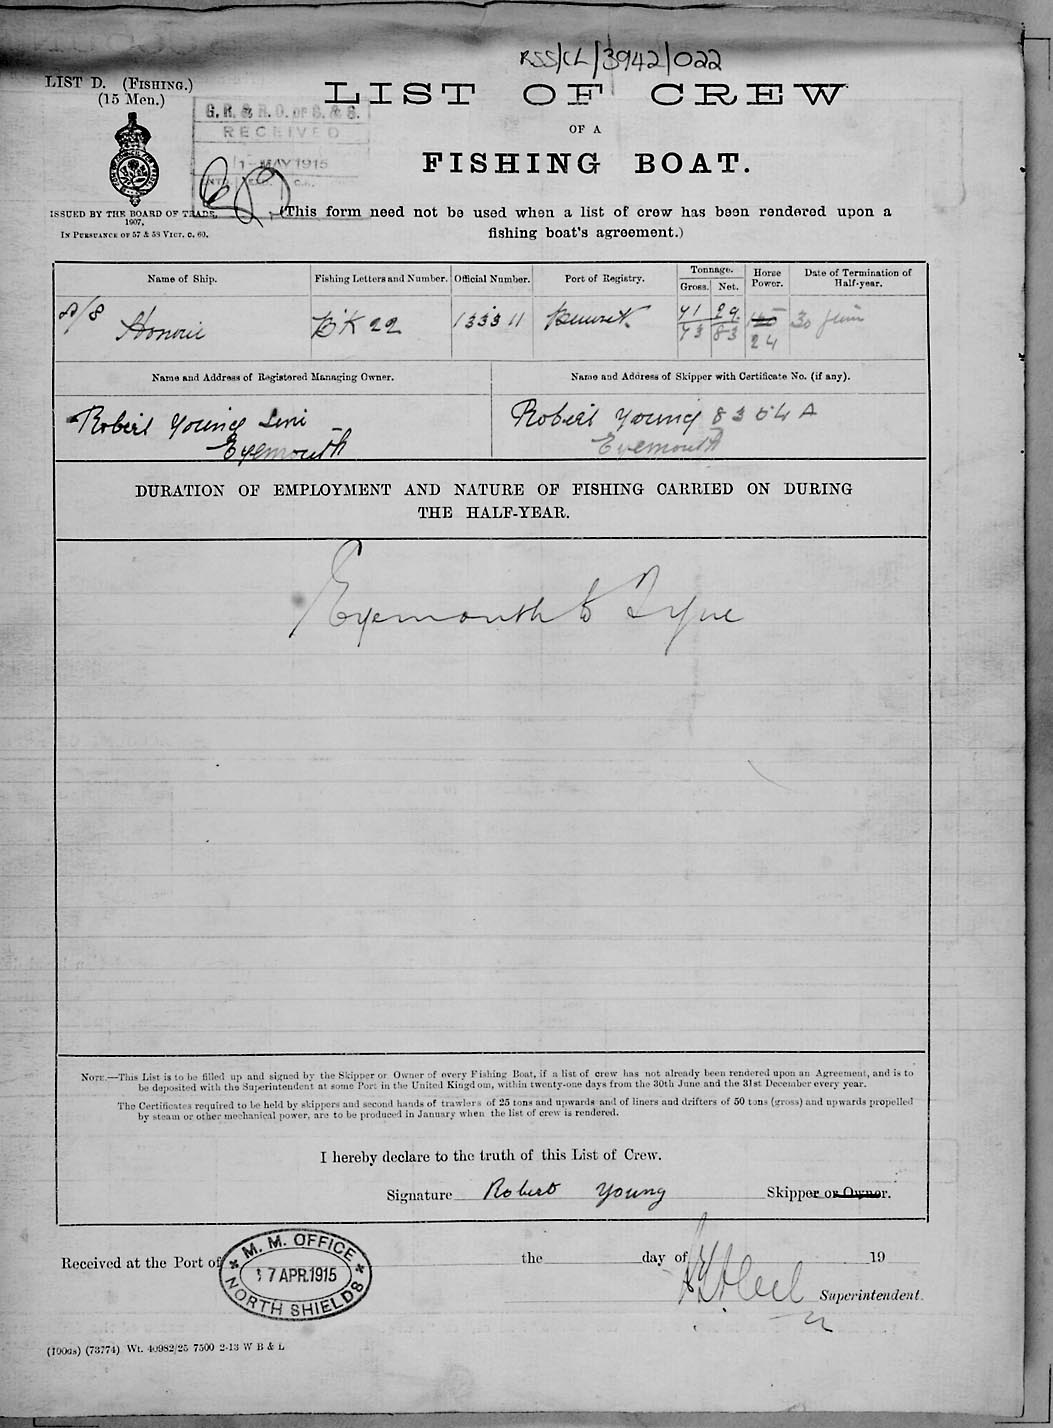 RSS/CL/3942/022
LIST D. (FISHING.)
(15 Men.)
LIST OF CREW
G. R. & R. O. OF S. & S.
RECEIVED
1 - MAY 1915
OF A
FISHING BOAT.
ISSUED BY THE BOARD OF TRADE,
1907,
IN PURSUANCE OF 57 & 58 VICT. C. 60.
(This form need not be used when a list of crew has been rendered upon a
fishing boat's agreement.)
Name of Ship.
Fishing Letters and Number.
Official Number.
Port of Registry.
Tonnage.
Gross.
Net.
Horse
Power.
Date of Termination of
Half-year.
BK 22
133311
Berwick
41 29
73 83
24
30 June
Name and Address of Registered Managing Owner.
Name and Address of Skipper with Certificate No. (if any).
Robert Young
Eyemouth
Robert Young 8304 A
Eyemouth
DURATION OF EMPLOYMENT AND NATURE OF FISHING CARRIED ON DURING
THE HALF-YEAR.
Eyemouth to Tyne
NOTE.—This List is to be filled up and signed by the Skipper or Owner of every Fishing Boat, if a list of crew has not already been rendered upon an Agreement, and is to
be deposited with the Superintendent at some Port in the United Kingdom, within twenty-one days from the 30th June and the 31st December every year.
The Certificates required to be held by skippers and second hands of trawlers of 25 tons and upwards and of liners and drifters of 50 tons (gross) and upwards propelled
by steam or other mechanical power, are to be produced in January when the list of crew is rendered.
I hereby declare to the truth of this List of Crew.
Signature Robert Young Skipper or Owner.
Received at the Port of
the day of 19
M. M. OFFICE
17 APR.1915
NORTH SHIELDS
Superintendent.
(100as) (73774) Wt. 40982/25 7500 2-13 W B & L